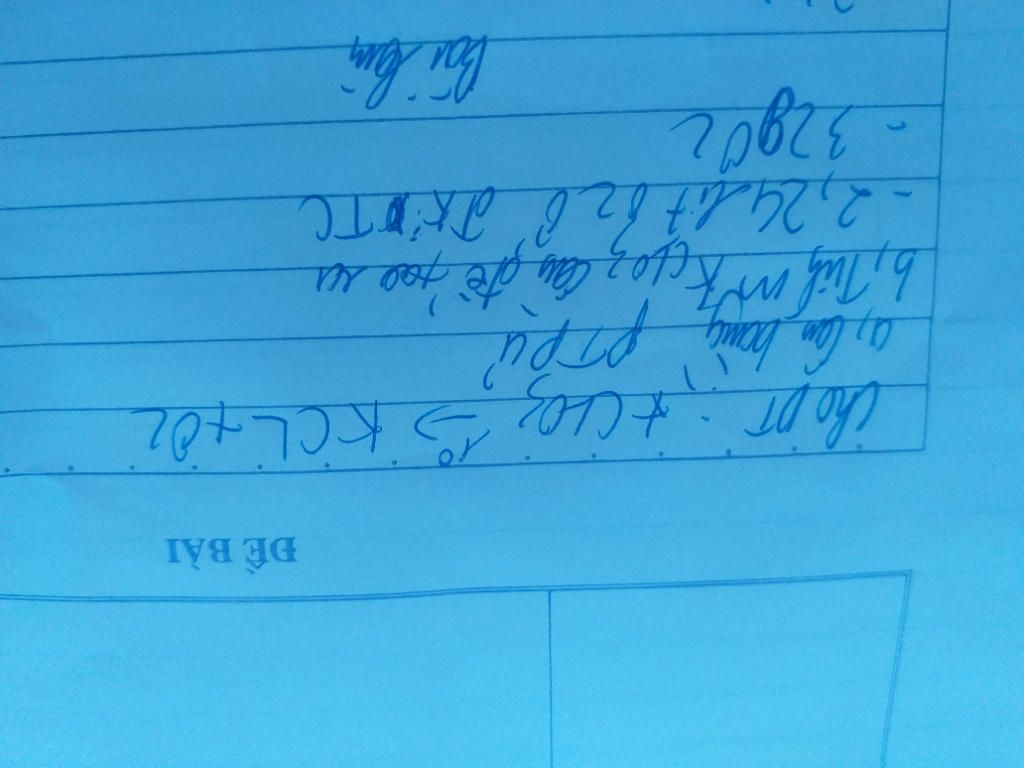 ĐỀ BÀI
Cho PT: KClO3 t° → KCL + O2
a, Cân bằng PTPứ
b, Tính m KClO3 cần để tạo ra
- 2,24 lit O2 ở ĐKTC
- 32g O2
Bài làm